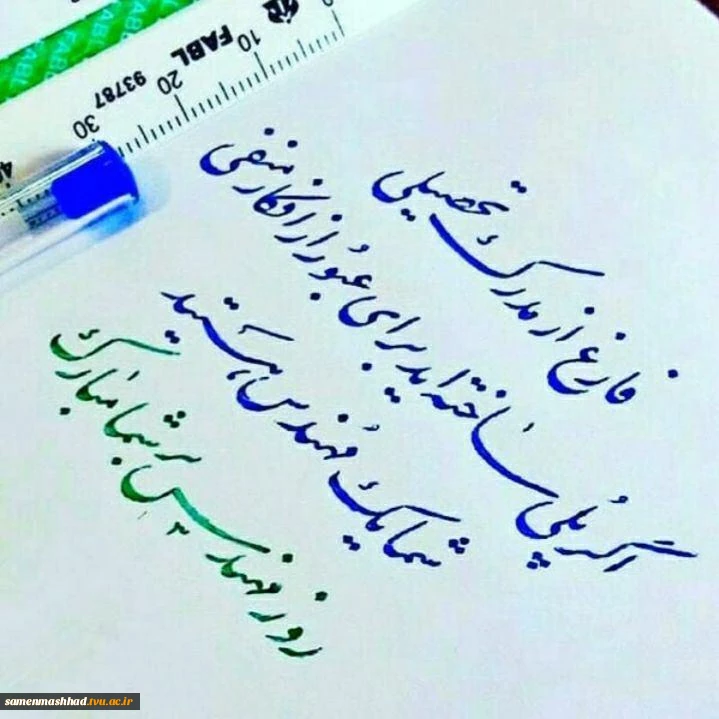 FABL
FABL
93787
0
10
20
30
40
فارغ از مدرک تحصیلی
اگر پلی ساخته اید برای عبور از افکار منفی
شما یک مهندس هستید
روز مهندس بر شما مبارک
samenmashhad.tvu.ac.ir